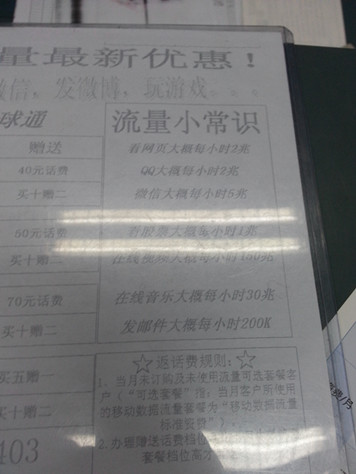 量最新优惠!
微信,发微博,玩游戏。。。
球通
流量小常识
赠送
看网页大概每小时2兆
40元话费
QQ大概每小时2兆
买十赠二
微信大概每小时5兆
50元话费
看股票大概每小时1兆
买十赠二
在线视频大概每小时
70元话费
在线音乐大概每小时30兆
买十赠二
发邮件大概每小时200K
☆返话费规则:☆
买五赠一
1、当月未订购及未使用流量可选套餐客
户(“可选套餐”指:当月客户所使用
的移动数据流量套餐为“移动数据流量
买十赠二
标准资费”)
403
2、办理赠送话费档位
套餐档位高才